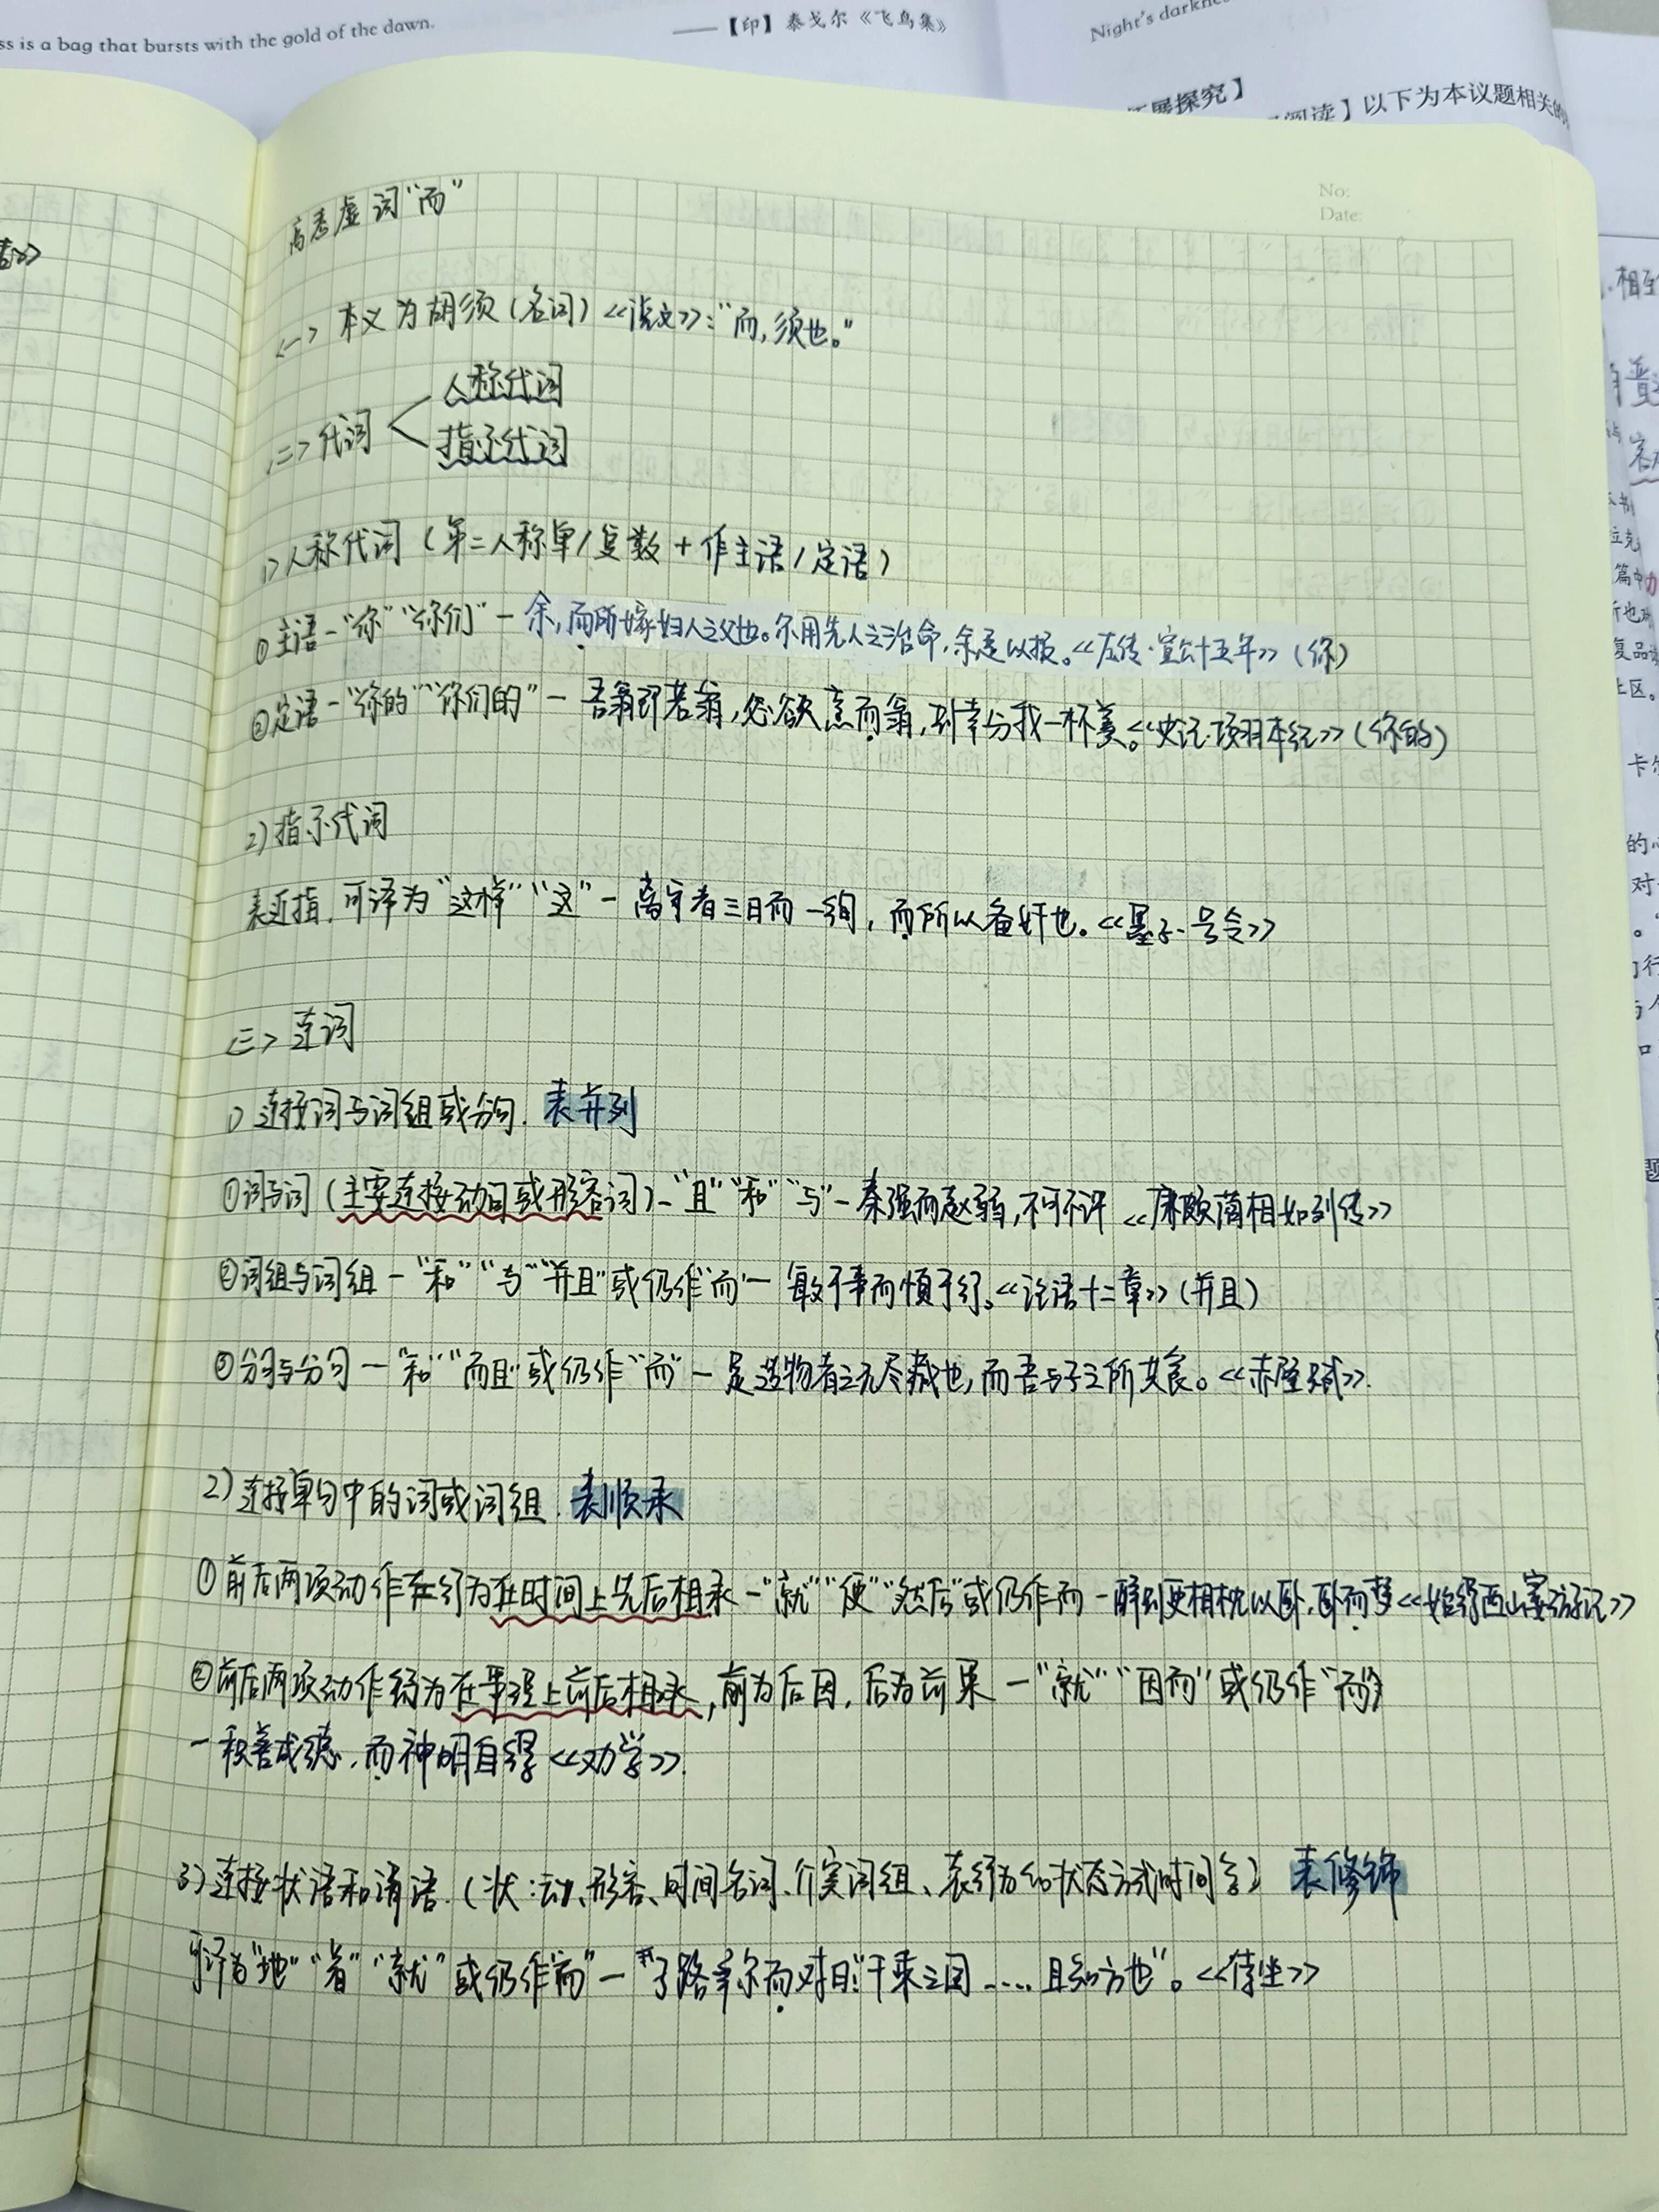 ss is a bag that bursts with the gold of the dawn.
——【印】泰戈尔《飞鸟集》
Night's darkne
展探究】
阅读】以下为本议题相关的
No:
Date:
高考虚词“而”
<一> 本义为胡须(名词)《说文》:“而,须也。”
<二> 代词
人称代词
指示代词
1> 人称代词(第二人称单/复数 + 作主语/定语)
①主语-“你”“你们”-余,而所嫁妇人之父也。尔用先人之治命,余是以报。《左传·宣公十五年》(你)
②定语-“你的”“你们的”-吾翁即若翁,必欲烹而翁,则幸分我一杯羹。《史记·项羽本纪》(你的)
2)指示代词
表近指,可译为“这样”“这”-离守者三日而一徇,而所以备奸也。《墨子·号令》
<三> 连词
1) 连接词与词组或分句.表并列
①词与词(主要连接动词或形容词)-“且”“和”“与”-秦强而赵弱,不可不许《廉颇蔺相如列传》
②词组与词组-“和”“与”“并且”或仍作“而”-敏于事而慎于行。《论语十二章》(并且)
③分句与分句-“和”“而且”或仍作“而”-是造物者之无尽藏也,而吾与子之所共食。《赤壁赋》.
2)连接单句中的词或词组.表顺承
①前后两项动作在行为在时间上先后相承-“就”“便”“然后”或仍作而-醉则更相枕以卧,卧而梦《始得西山宴游记》
②前后两项动作行为在事理上前后相承,前为后因,后为前果-“就”“因而”或仍作“而”
-积善成德,而神明自得《劝学》.
3)连接状语和谓语.(状:动、形容、时间名词、介宾词组、表行为的状态方式时间等)表修饰
可译为“地”“着”“就”或仍作“而”-“子路率尔而对曰:“千乘之国……且知方也”。《侍坐》